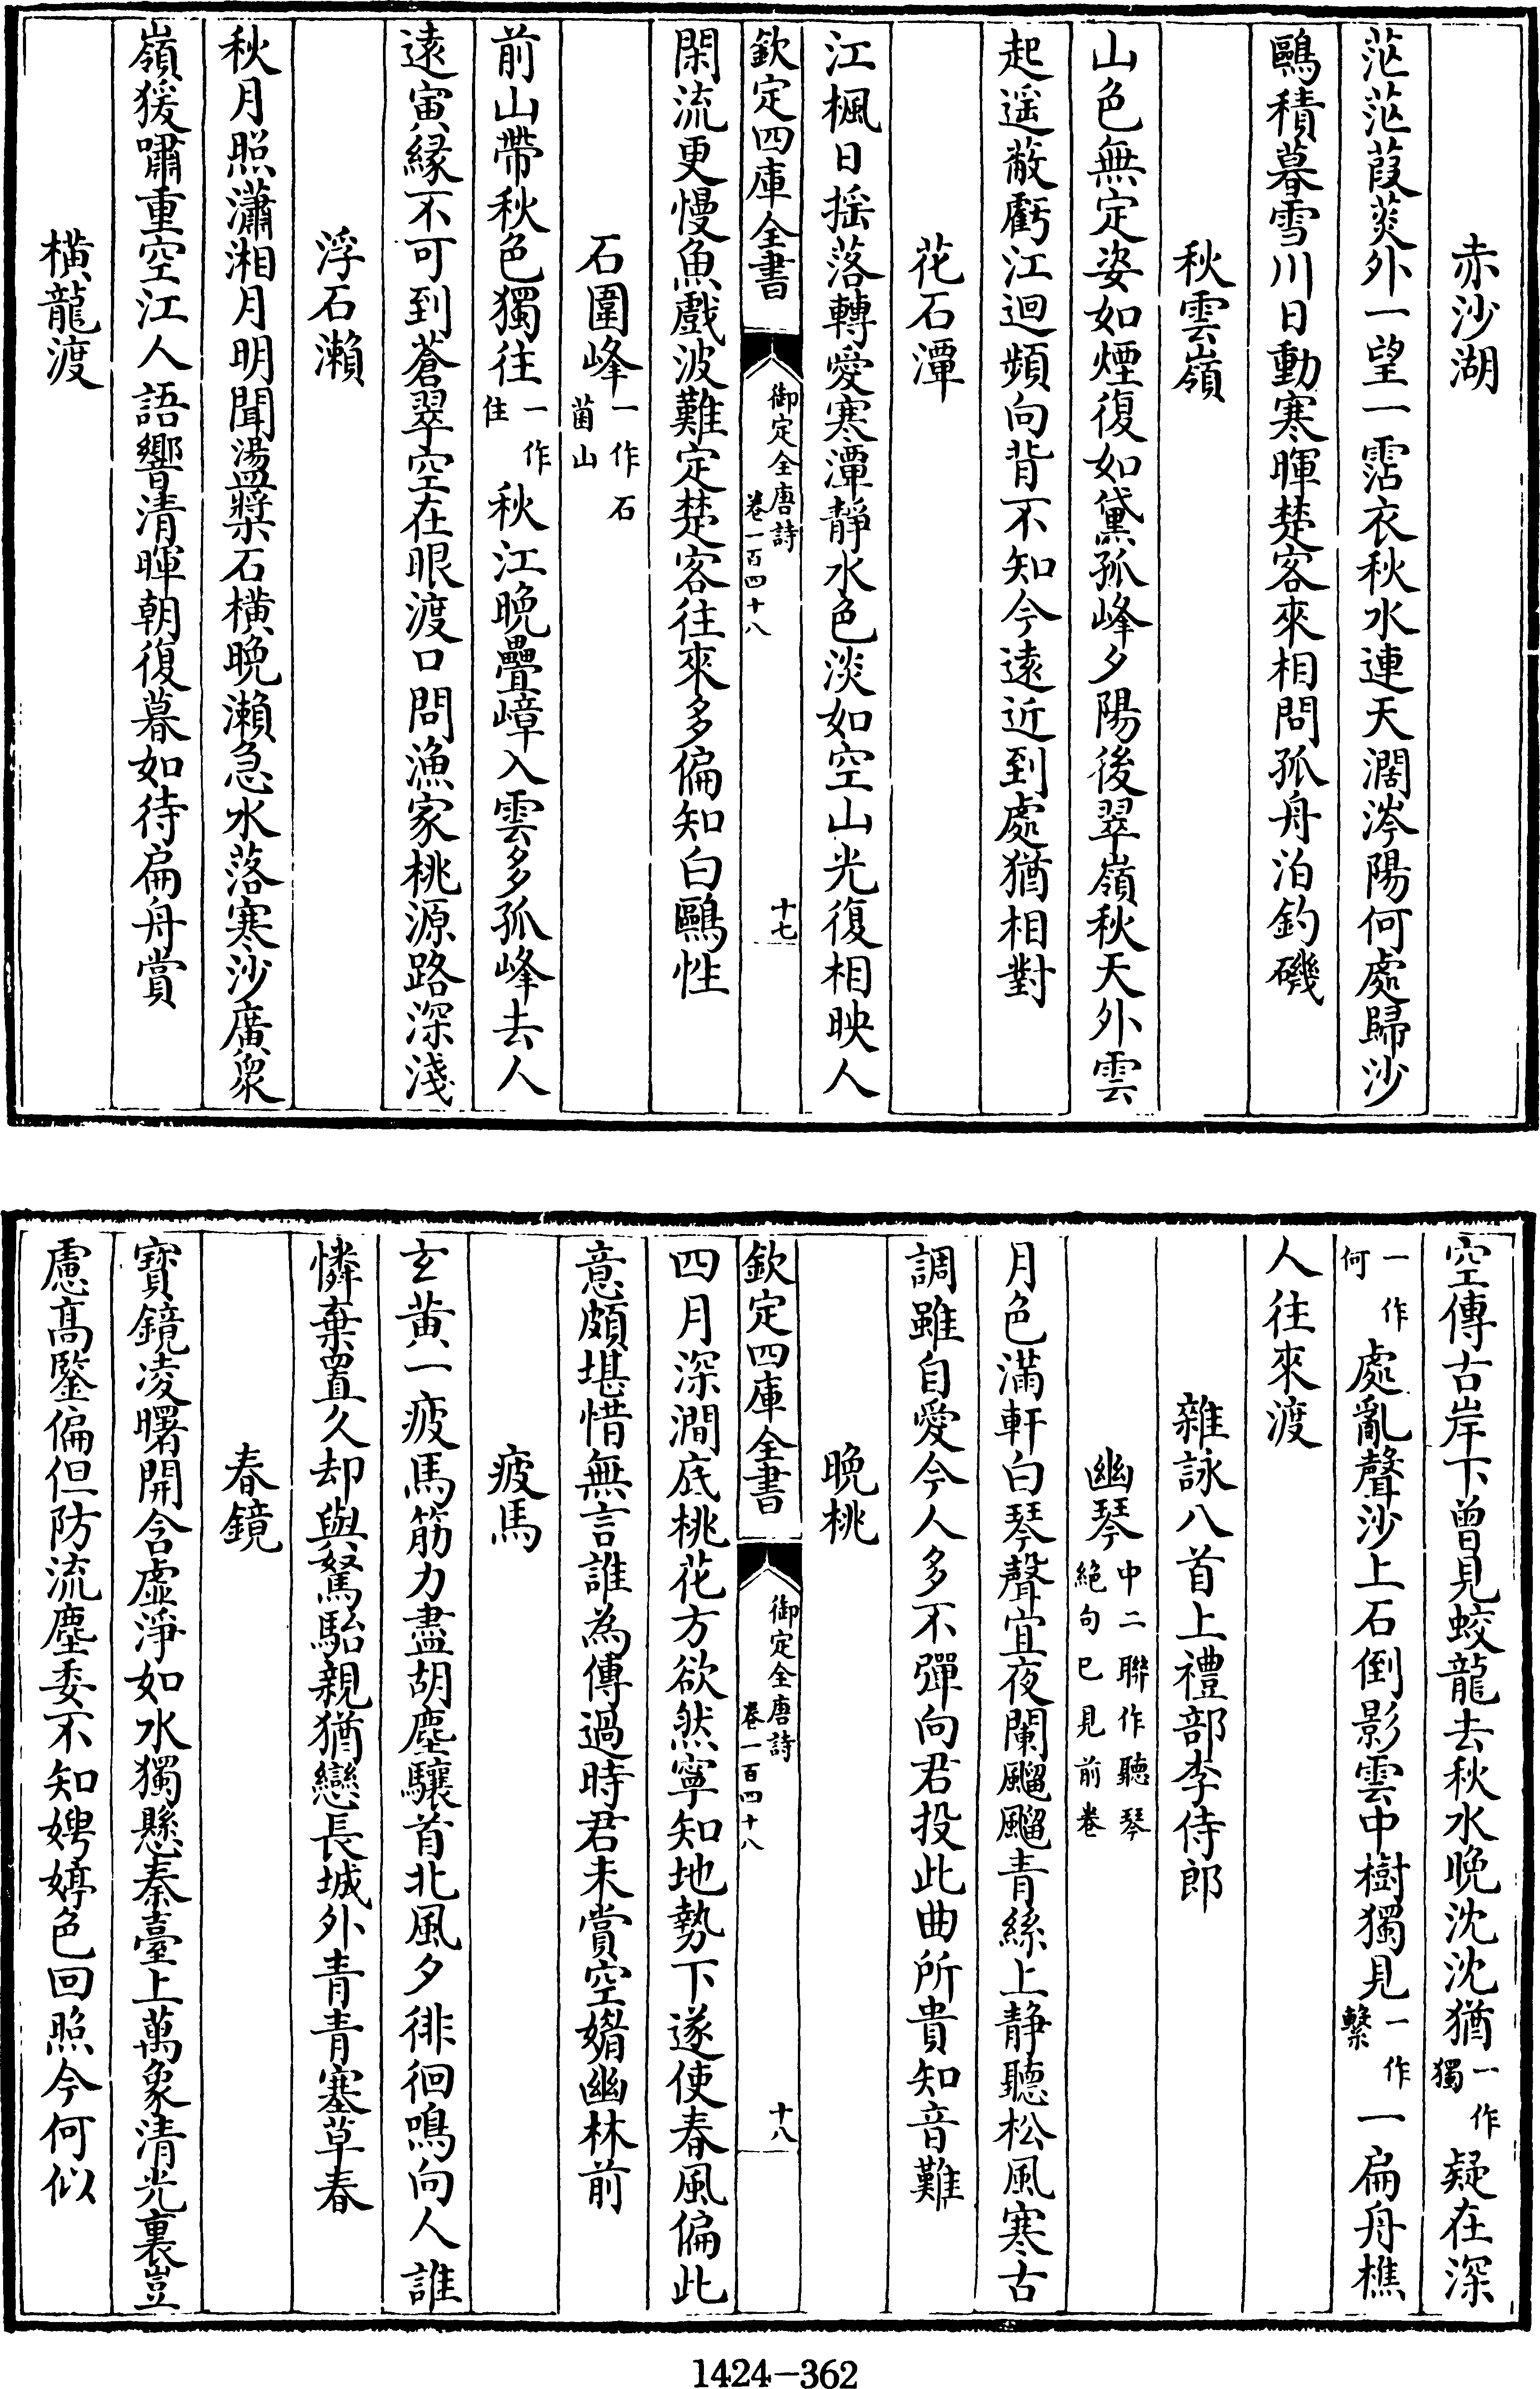 赤沙湖
茫茫葭菼外一望一霑衣秋水連天濶涔陽何處歸沙
鷗積暮雪川日動寒暉楚客來相問孤舟泊釣磯
秋雲嶺
山色無定姿如煙復如黛孤峰夕陽後翠嶺秋天外雲
起遥蔽虧江迴頻向背不知今遠近到處猶相對
花石潭
江楓日揺落轉愛寒潭靜水色淡如空山光復相映人
欽定四庫全書 御定全唐詩 卷一百四十八 十七
閑流更慢魚戲波難定楚客往來多偏知白鷗性
石圍峰一作石菌山
前山帶秋色獨往一作住秋江晚疊嶂入雲多孤峰去人
遠夤縁不可到蒼翠空在眼渡口問漁家桃源路深淺
浮石瀨
秋月照瀟湘月明聞盪槳石橫晚瀨急水落寒沙廣衆
嶺猨嘯重空江人語響清暉朝復暮如待扁舟賞
橫龍渡
空傳古岸下曾見蛟龍去秋水晚沈沈猶一作獨疑在深
一作何處亂聲沙上石倒影雲中樹獨見一作繫一扁舟樵
人往來渡
雜詠八首上禮部李侍郎
幽琴中二聯作聽琴絶句巳見前卷
月色滿軒白琴聲宜夜闌飀飀青絲上靜聽松風寒古
調雖自愛今人多不彈向君投此曲所貴知音難
晚桃
欽定四庫全書 御定全唐詩 卷一百四十八 十八
四月深澗底桃花方欲然寧知地勢下遂使春風偏此
意頗堪惜無言誰為傳過時君未賞空媚幽林前
疲馬
玄黄一疲馬筋力盡胡塵驤首北風夕徘徊鳴向人誰
憐棄置久却與駑駘親猶戀長城外青青塞草春
春鏡
寳鏡凌曙開含虛淨如水獨懸秦臺上萬象清光裏豈
慮髙鑒偏但防流塵委不知娉婷色回照今何似
1424-362